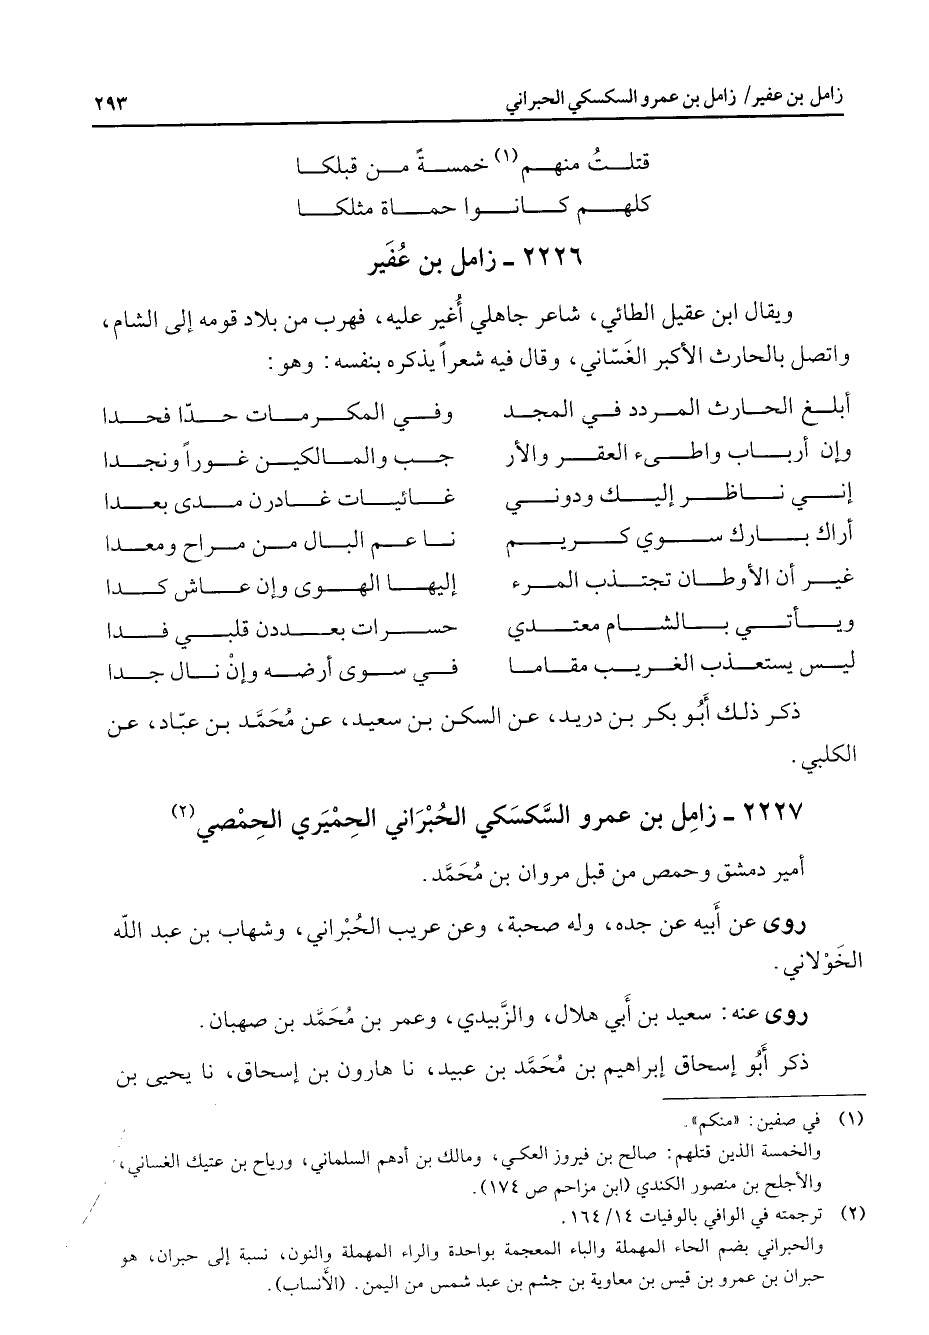 زامل بن عفير/ زامل بن عمرو السكسكي الحبراني ٢٩٣
قتلتُ منهم(١) خمسةً من قبلكا
كلهم كانوا حماة مثلكا
٢٢٢٦ ـ زامل بن عُفَير
ويقال ابن عقيل الطائي، شاعر جاهلي أُغير عليه، فهرب من بلاد قومه إلى الشام،
واتصل بالحارث الأكبر الغَسّاني، وقال فيه شعراً يذكره بنفسه: وهو:
أبلغ الحارث المردد في المجد وفي المكرمات حدّا فحدا
وإن أرباب واطىء العقر والأر جب والمالكين غوراً ونجدا
إني ناظر إليك ودوني غائيات غادرن مدى بعدا
أراك بارك سوي كريم ناعم البال من مراح ومعدا
غير أن الأوطان تجتذب المرء إليها الهوى وإن عاش كدا
ويأتي بالشام معتدي حسرات بعددن قلبي فدا
ليس يستعذب الغريب مقاما في سوى أرضه وإنْ نال جدا
ذكر ذلك أَبُو بكر بن دريد، عن السكن بن سعيد، عن مُحَمَّد بن عبّاد، عن
الكلبي.
٢٢٢٧ ـ زامِل بن عمرو السَّكسَكي الحُبْرَاني الحِمْيَري الحِمْصي(٢)
أمير دمشق وحمص من قبل مروان بن مُحَمَّد.
روى عن أَبيه عن جده، وله صحبة، وعن عريب الحُبْراني، وشهاب بن عبد الله
الخَوْلاني.
روى عنه: سعيد بن أَبي هلال، والزَّبيدي، وعمر بن مُحَمَّد بن صهبان.
ذكر أَبُو إسحاق إبراهيم بن مُحَمَّد بن عبيد، نا هارون بن إسحاق، نا يحيى بن
(١) في صفين: «منكم».
والخمسة الذين قتلهم: صالح بن فيروز العكي، ومالك بن أدهم السلماني، ورياح بن عتيك الغساني،
والأجلح بن منصور الكندي (ابن مزاحم ص ١٧٤).
(٢) ترجمته في الوافي بالوفيات ١٤/ ١٦٤.
والحبراني بضم الحاء المهملة والباء المعجمة بواحدة والراء المهملة والنون، نسبة إلى حبران، هو
حبران بن عمرو بن قيس بن معاوية بن جشم بن عبد شمس من اليمن. (الأنساب).